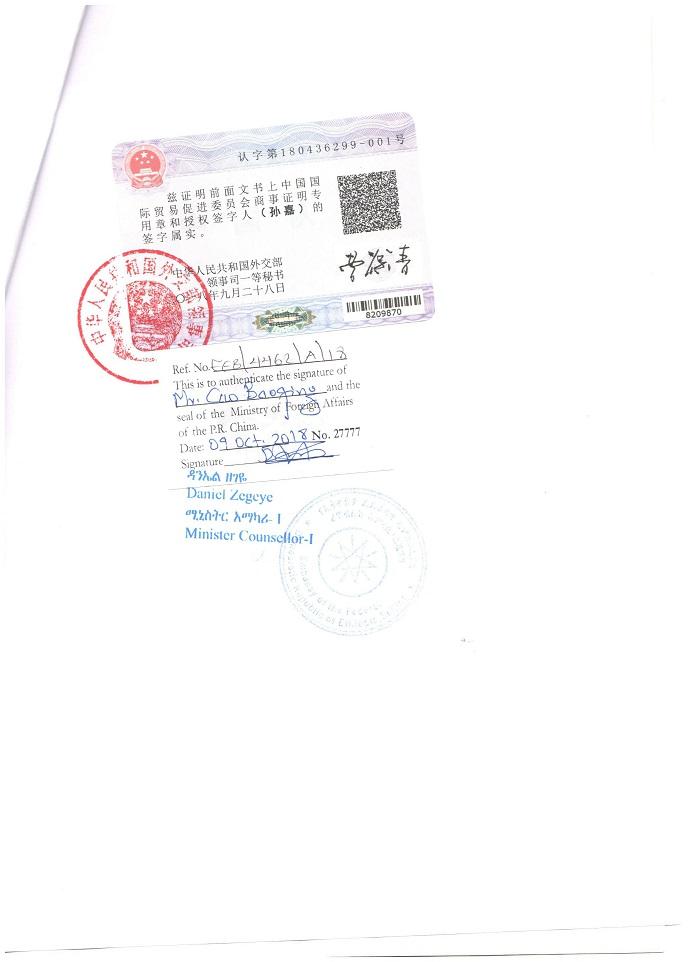 认字第180436299-001号
兹证明前面文书上中国国
际贸易促进委员会商事证明专
用章和授权签字人（孙嘉）的
签字属实。
中华人民共和国外交部
领事司一等秘书
二〇一八年九月二十八日
8209870
中华人民共和国外交部
Ref. No. EEB/4462/A/18
This is to authenticate the signature of
Mr. Cao Baoqing and the
seal of the Ministry of Foreign Affairs
of the P.R. China.
Date: 09 Oct. 2018 No. 27777
Signature
ዳንኤል ዘገዬ
Daniel Zegeye
ሚኒስትር አማካሪ- I
Minister Counsellor-I
Embassy of the Federal
Republic of Ethiopia